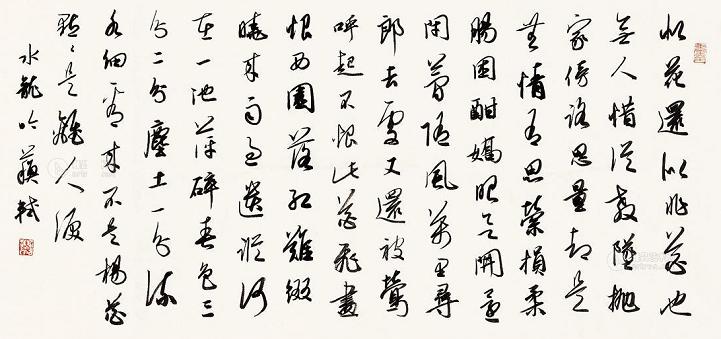 似花還似非花也
無人惜從教墜拋
家傍路思量却是
無情有思縈損柔
腸困酣嬌眼欲開還
閉夢隨風萬里尋
郎去處又還被鶯
呼起不恨此花飛盡
恨西園落紅難綴
曉來雨過遺蹤何
在一池萍碎春色三
分二分塵土一分流
水細看來不是楊花
點々是離人淚
水龍吟蘇軾